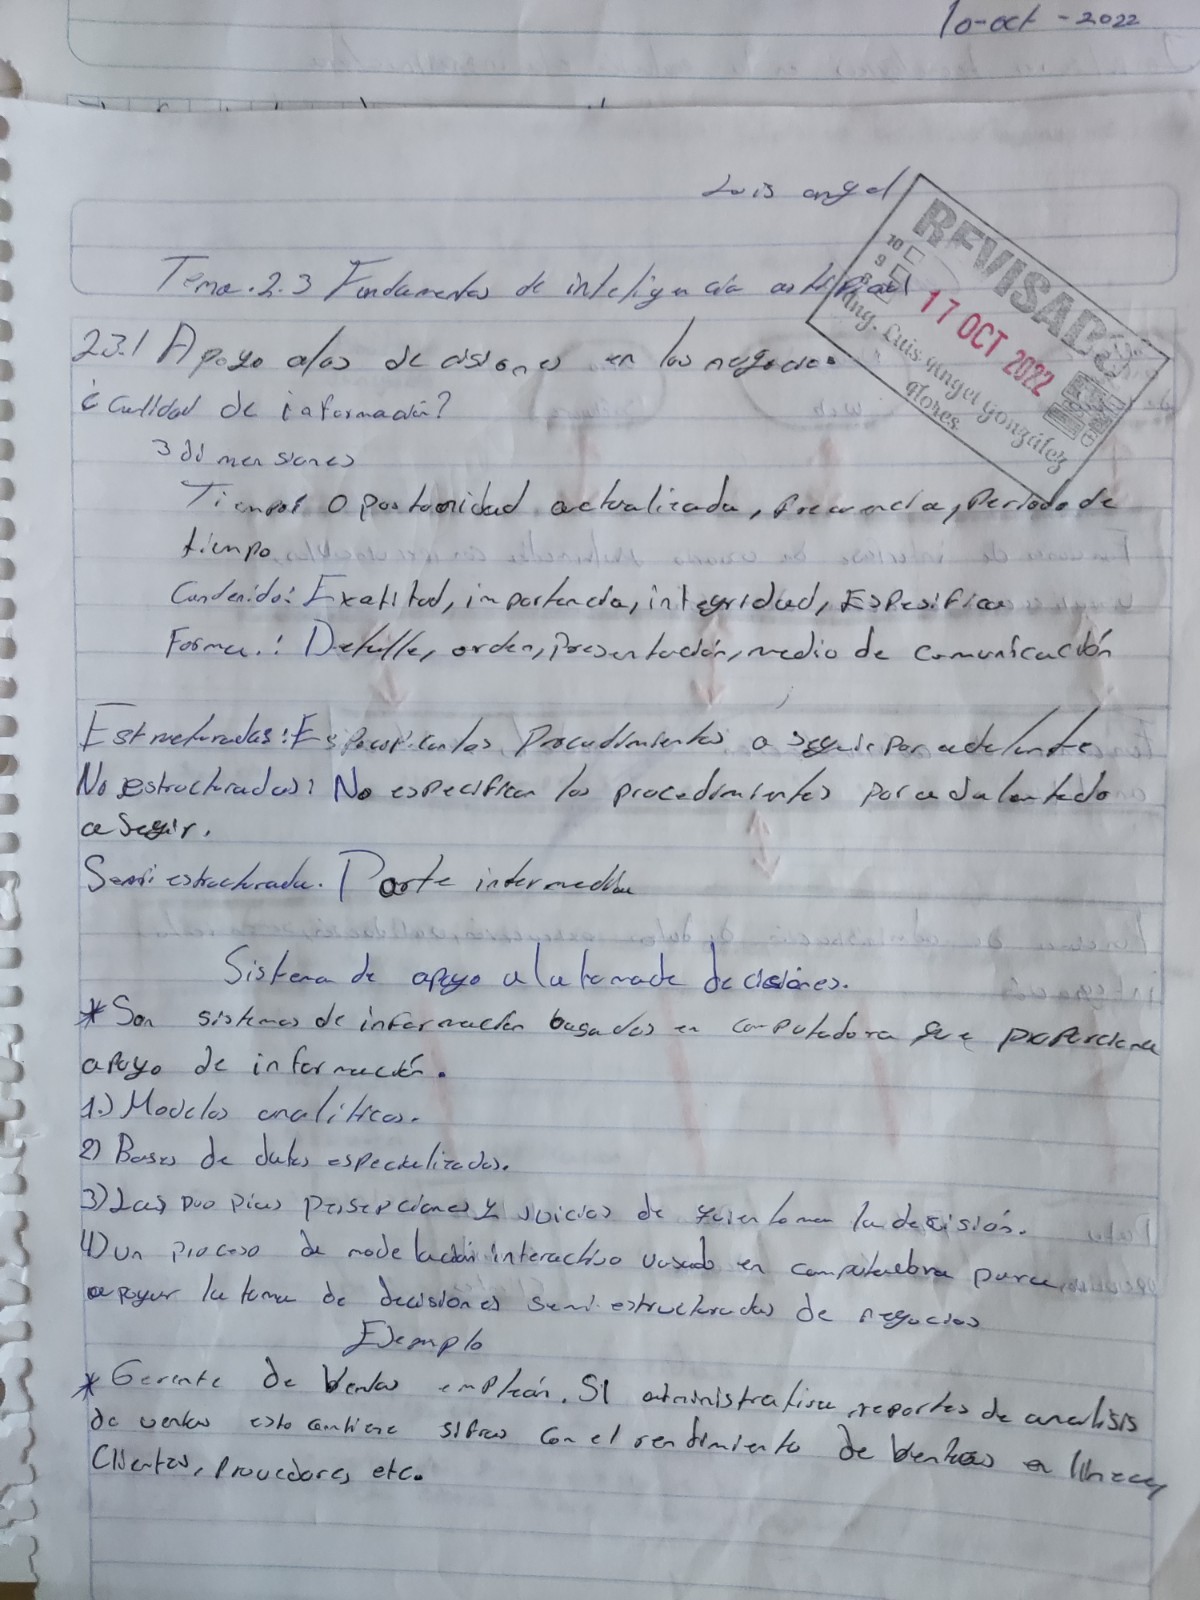 10-oct-2022
Luis angel
REVISADO
10
9
8
17 OCT 2022
Ing. Luis Angel González
flores
Tema.2.3 Fundamentos de inteligencia artificial
2.3.1 Apoyo a las decisiones en los negocios
¿Calidad de información?
3 dimensiones
Tiempo: Oportunidad actualizada, frecuencia, Periodo de
tiempo
Contenido: Exatitud, importancia, integridad, Espesifica
Forma.: Detalle, orden, presentación, medio de comunicación
Estructuradas: Especifican los Procedimientos a seguir por adelante
No estructuradas: No especifican los procedimientos por adalantado
a seguir.
Semi estructurada. Parte intermedia
Sistema de apoyo a la toma de decisiones.
* Son sistemas de información basados en computadora que proporciona
apoyo de información.
1.) Modelos analíticos.
2) Bases de datos especializados.
3) Las propias persepciones y juicios de quien toman la decisión.
4) Un proceso de modelación interactivo vasado en computadora para
apoyar la toma de decisiones semi estructuradas de negocios
Ejemplo
* Gerente de Ventas emplean. SI administrativa, reportes de analisis
de ventas esto contiene sifras con el rendimiento de Ventas en linea,
Clientes, Proveedores etc.